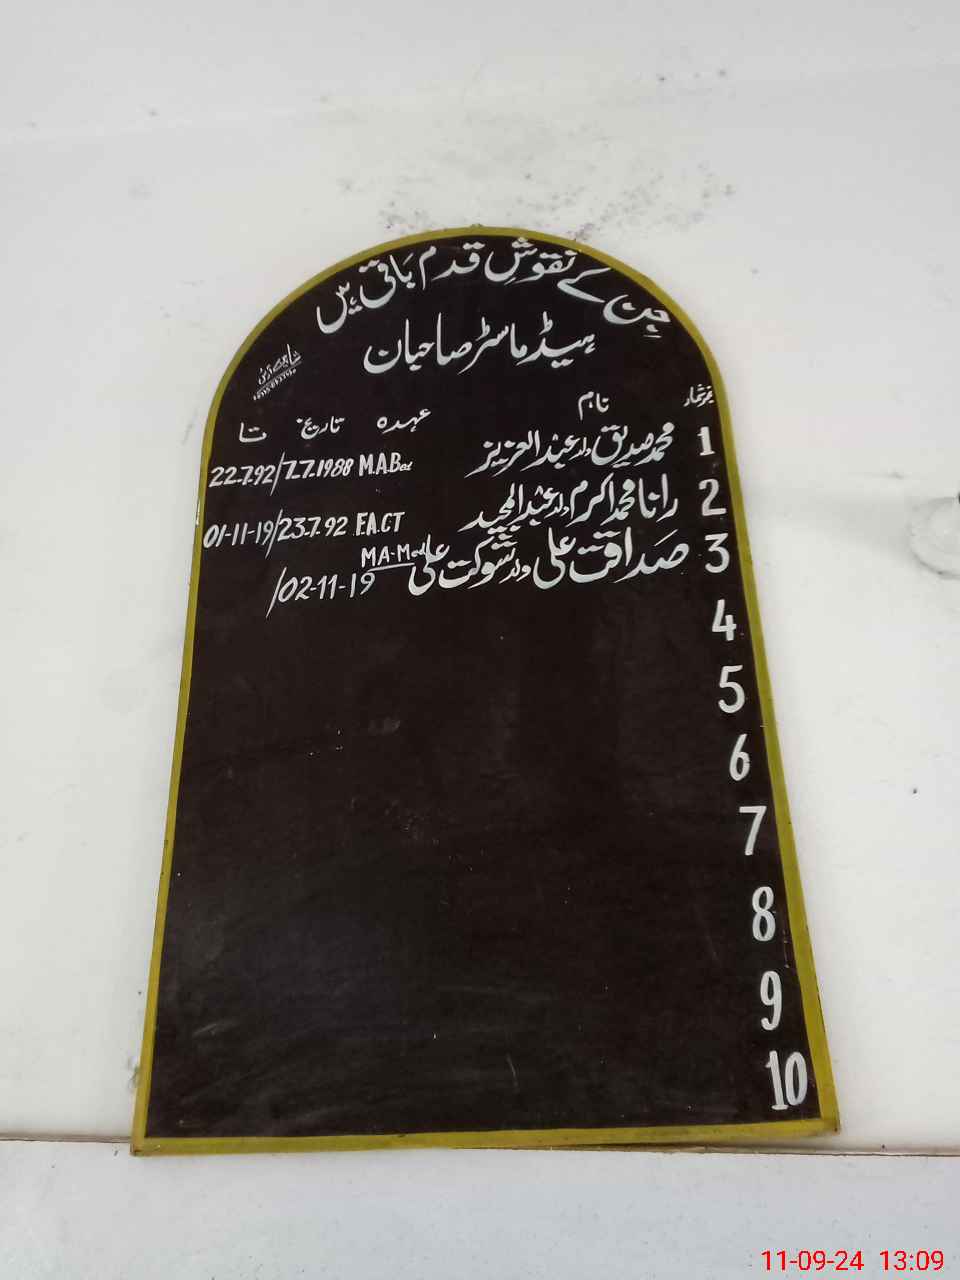 جن کے نقوشِ قدم باقی ہیں
ہیڈ ماسٹر صاحبان
نمبر شمار نام عہدہ تاریخ تا
1 محمد صدیق ولد عبدالعزیز M.A.Bed 7.7.1988/22.7.92
2 رانا محمد اکرم ولد عبدالمجید F.A.CT 23.7.92/01-11-19
3 صداقت علی ولد شوکت علی MA-Med 02-11-19/
4
5
6
7
8
9
10
11-09-24 13:09